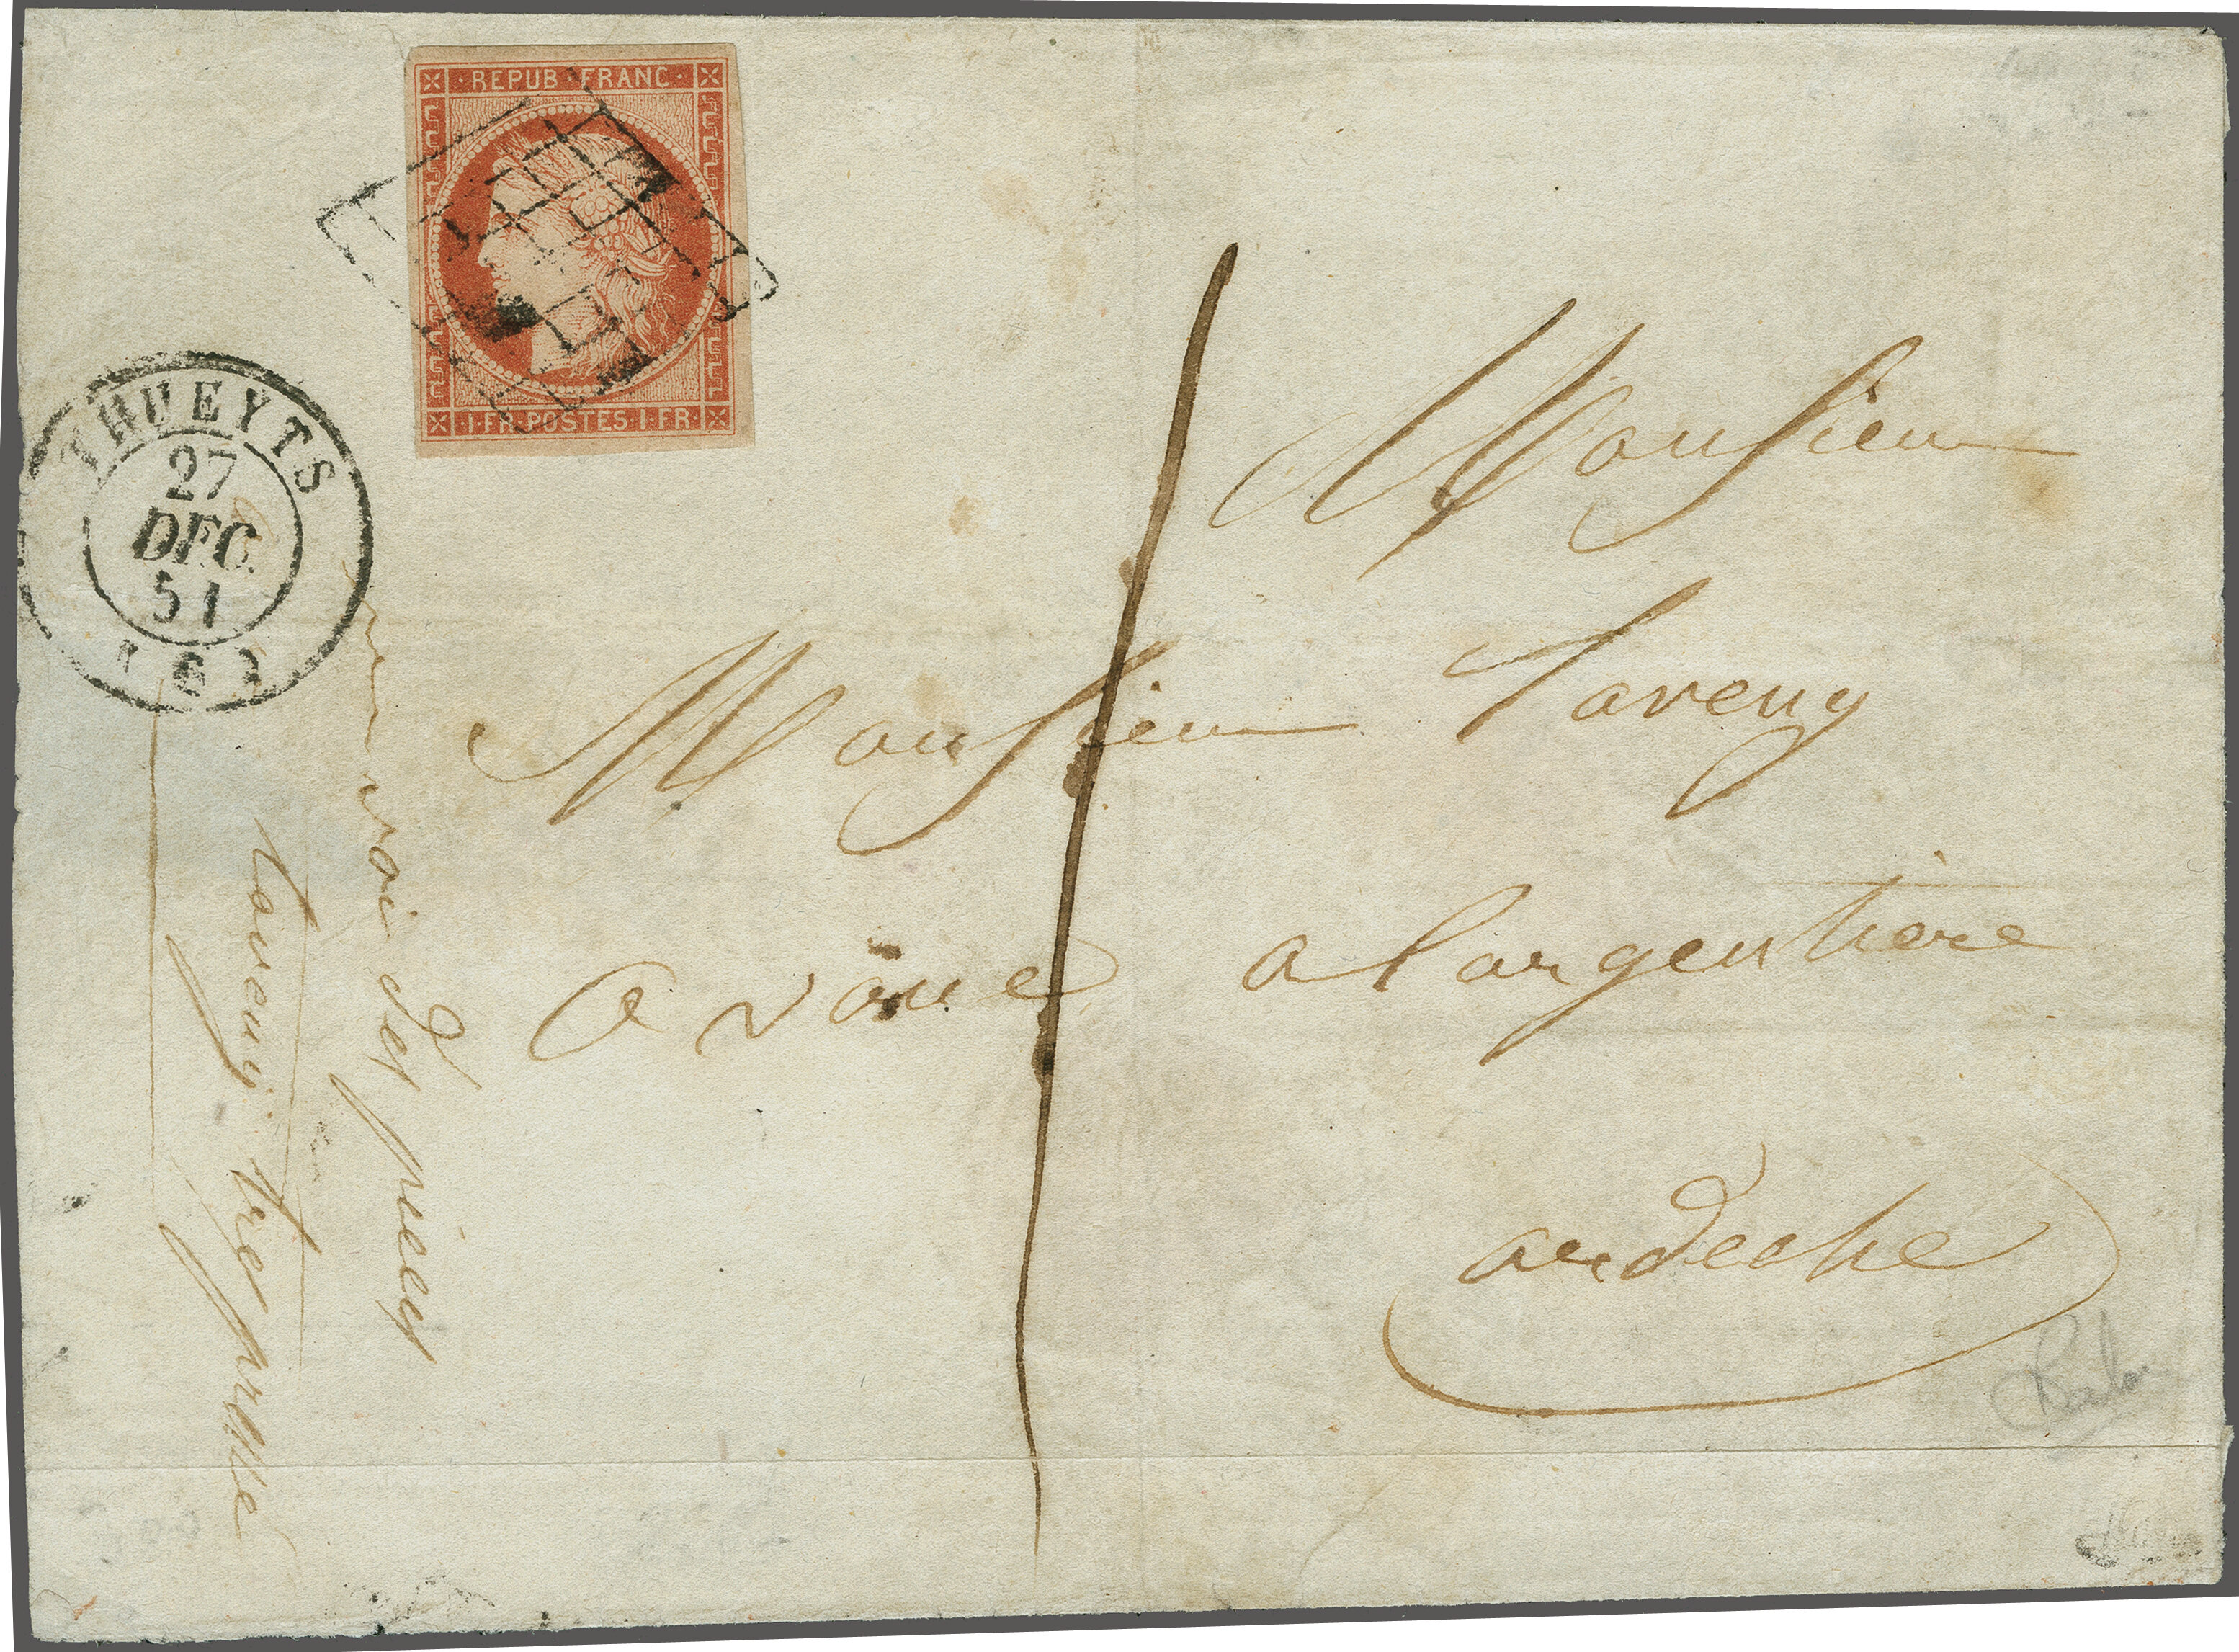 · REPUB · FRANC ·
· 1 · FR · POSTES · 1 · FR ·
THUEYTS
27
DEC.
51
(6)
1
Monsieur
Monsieur Taveny
avoué a largentiere
ardeche
envoi des pièces
taveny